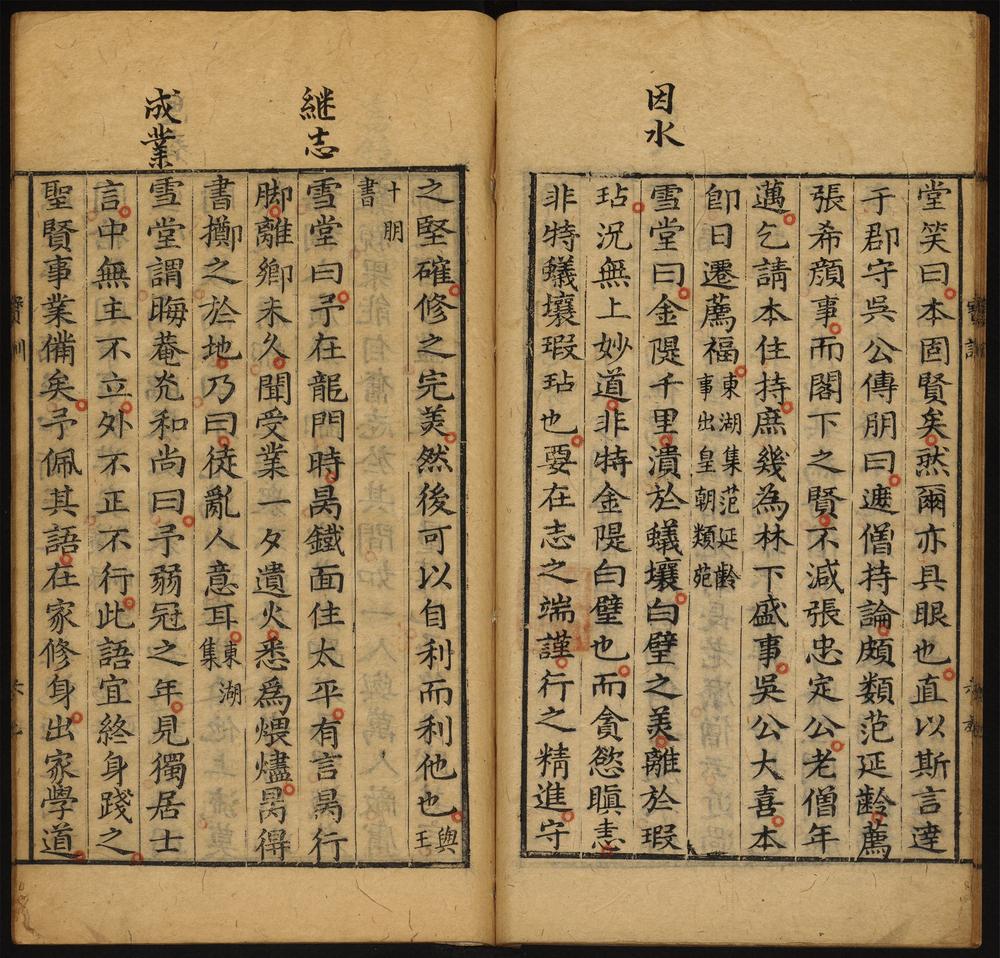 因水
堂笑曰本固賢矣然爾亦具眼也直以斯言達
于郡守吳公傅朋曰遮僧持論頗類范延齡薦
張希顏事而閣下之賢不減張忠定公老僧年
邁乞請本住持庶幾為林下盛事吳公大喜本
即日遷薦福東湖集范延齡事出皇朝類苑
雪堂曰金隄千里潰於蟻壤白璧之美離於瑕
玷況無上妙道非特金隄白璧也而貪慾瞋恚
非特蟻壤瑕玷也要在志之端謹行之精進守
継志
成業
之堅確修之完美然後可以自利而利他也與王
十朋書
雪堂曰予在龍門時昺鐵面住太平有言昺行
脚離鄉未久聞受業一夕遺火悉爲煨燼昺得
書擲之於地乃曰徒亂人意耳東湖集
雪堂謂晦菴光和尚曰予弱冠之年見獨居士
言中無主不立外不正不行此語宜終身踐之
聖賢事業備矣予佩其語在家修身出家學道